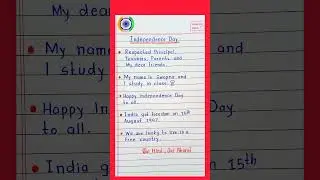 My dear
My name
I study
Happy In
to all.
India g
Independence Day
• Respected Principal,
Teachers, Parents and
My dear friends.
• My name is Swapna and
I study in class 8
• Happy Independence Day
to all.
• India got freedom on 15th
August 1947.
• We are lucky to live in a
free country.
Jai Hind, Jai Bharat
ds.
and
Day
n 15th